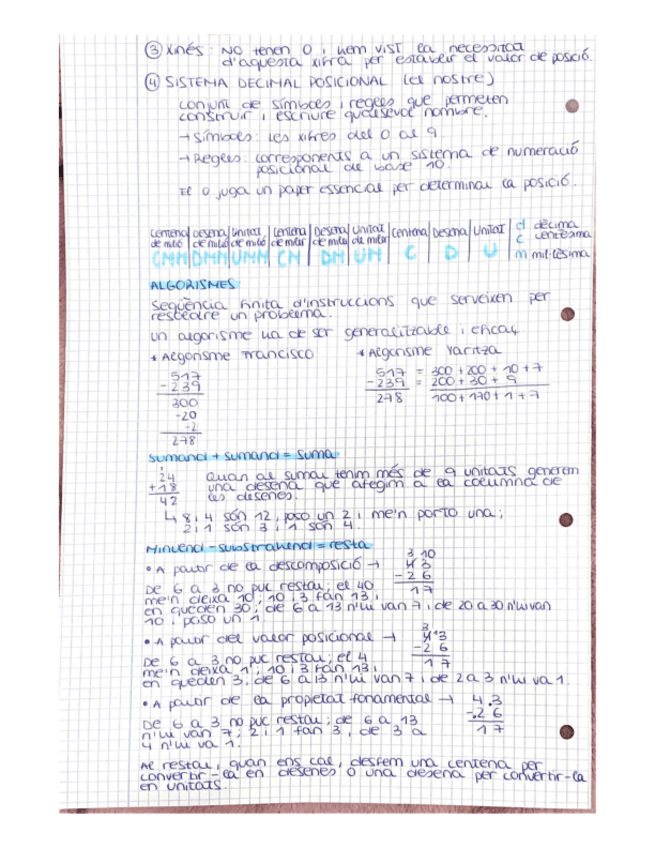 ③ Xinés: No tenen 0 i hem vist la necessitat
d'aquesta xifra per establir el valor de posició.
④ SISTEMA DECIMAL POSICIONAL (el nostre)
Conjunt de símbols i regles que permeten
construir i escriure qualsevol nombre.
→ Símbols: Les xifres del 0 al 9.
→ Regles: corresponents a un sistema de numeració
posicional de base 10.
El 0 juga un paper essencial per determinar la posició.
Centena de milió | Desena de milió | Unitat de milió | Centena de milar | Desena de milar | Unitat de milar | Centena | Desena | Unitat | d dècima
c centèsima
CMM | DMM | UMM | CM | DM | UM | C | D | U | m mil·lèsima
ALGORISMES
Seqüència finita d'instruccions que serveixen per
resoldre un problema.
Un algorisme ha de ser generalitzable i eficaç
* Algorisme Francisco * Algorisme Yaritza
517 517 = 300 + 200 + 10 + 7
-239 -239 = 200 + 30 + 9
300 278 100 + 170 + 1 + 7
-20
-2
278
Sumand + sumand = suma
1
24 Quan al sumar tenim més de 9 unitats generem
+18 una desena que afegim a la columna de
42 les desenes.
↳ 8 i 4 són 12, poso un 2 i me'n porto una;
2 i 1 són 3 i 1 són 4.
Minuend - substrahend = resta
• A partir de la descomposició → 3 10
43
-26
17
De 6 a 3 no puc restar; el 40
me'n deixa 10; 10 i 3 fan 13 i
en queden 30; de 6 a 13 n'hi van 7 i de 20 a 30 n'hi van
10 i poso un 1.
• A partir del valor posicional → 3
4 13
-2 6
1 7
De 6 a 3 no puc restar; el 4
me'n deixa 1; 10 i 3 fan 13 i
en queden 3; de 6 a 13 n'hi van 7 i de 2 a 3 n'hi va 1.
• A partir de la propietat fonamental → 4.3
-.26
17
De 6 a 3 no puc restar; de 6 a 13
n'hi van 7; 2 i 1 fan 3, de 3 a
4 n'hi va 1.
Al restar, quan ens cal, desfem una centena per
convertir-la en desenes o una desena per convertir-la
en unitats.